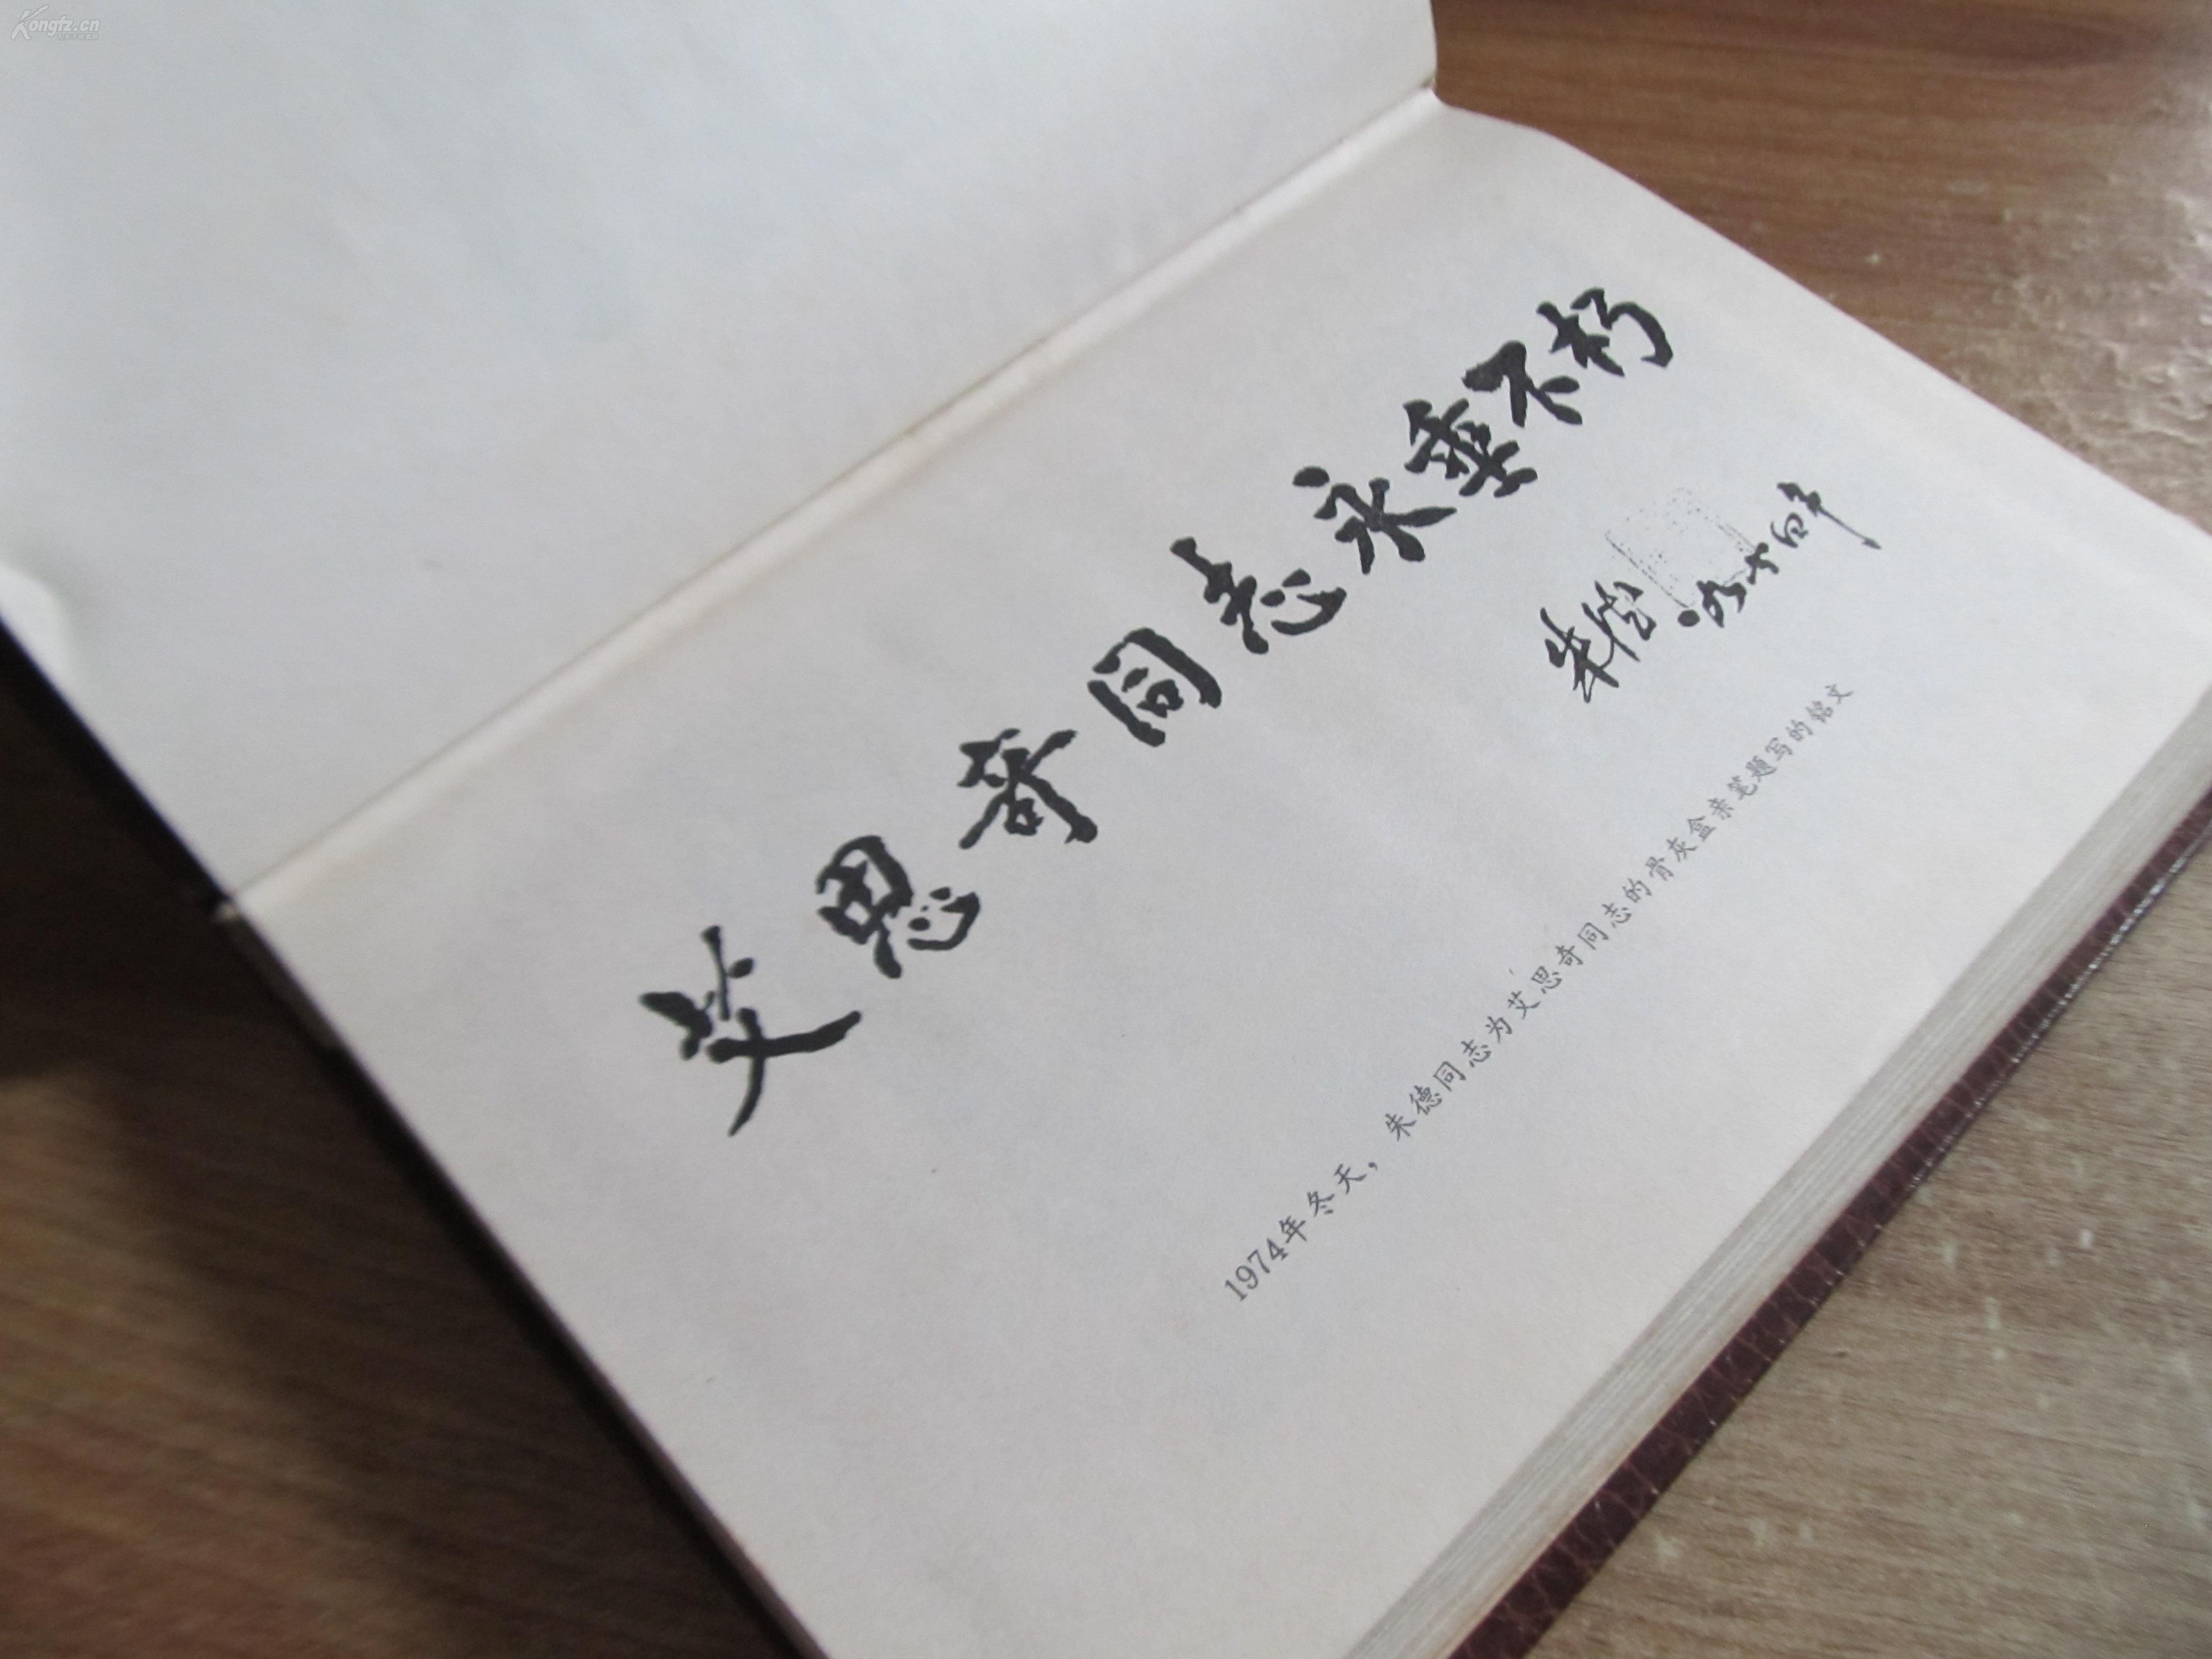 Kongfz.cn
艾思奇同志永垂不朽
朱德
1974年冬天，朱德同志为艾思奇同志的骨灰盒亲笔题写的铭文